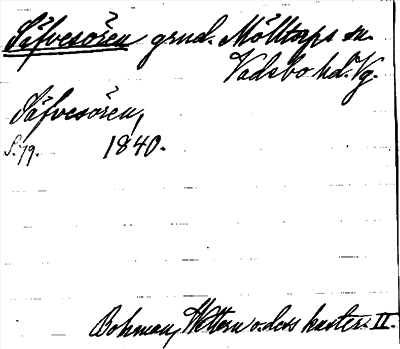 Säfvesören grund. Mölltorps sn.
Vadsbo hd. Vg.
Säfvesören,
S. 79. 1840.
Bohman, Wettern o. dess kuster. II.